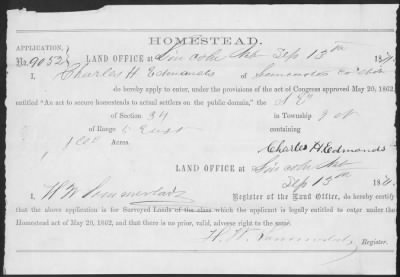 HOMESTEAD.
APPLICATION,
No. 9052 LAND OFFICE at Lincoln Neb Sep 13th 187
I, Charles H Edmands of Saunders Co Neb
do hereby apply to enter, under the provisions of the act of Congress approved May 20, 1862,
entitled "An act to secure homesteads to actual settlers on the public domain," the
of Section 34 in Township
of Range 5 East containing
160 Acres.
Charles H. Edmands
LAND OFFICE at Lincoln Neb
Sep 13th 187
I, Register of the Land Office, do hereby certify
that the above application is for Surveyed Lands of the class which the applicant is legally entitled to enter under the
Homestead act of May 20, 1862, and that there is no prior, valid, adverse right to the same.
Register.